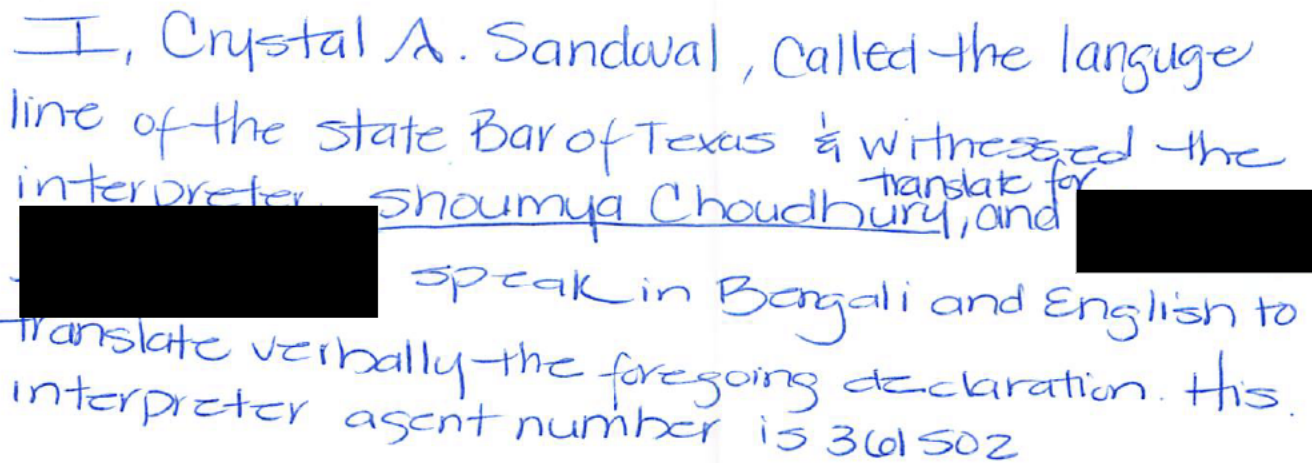 I, Crystal A. Sandoval, called the languge
line of the state Bar of Texas & witnessed the
interpreter, Shoumya Choudhury, translate for and
speak in Bengali and English to
translate verbally the foregoing declaration. His
interpreter agent number is 361502